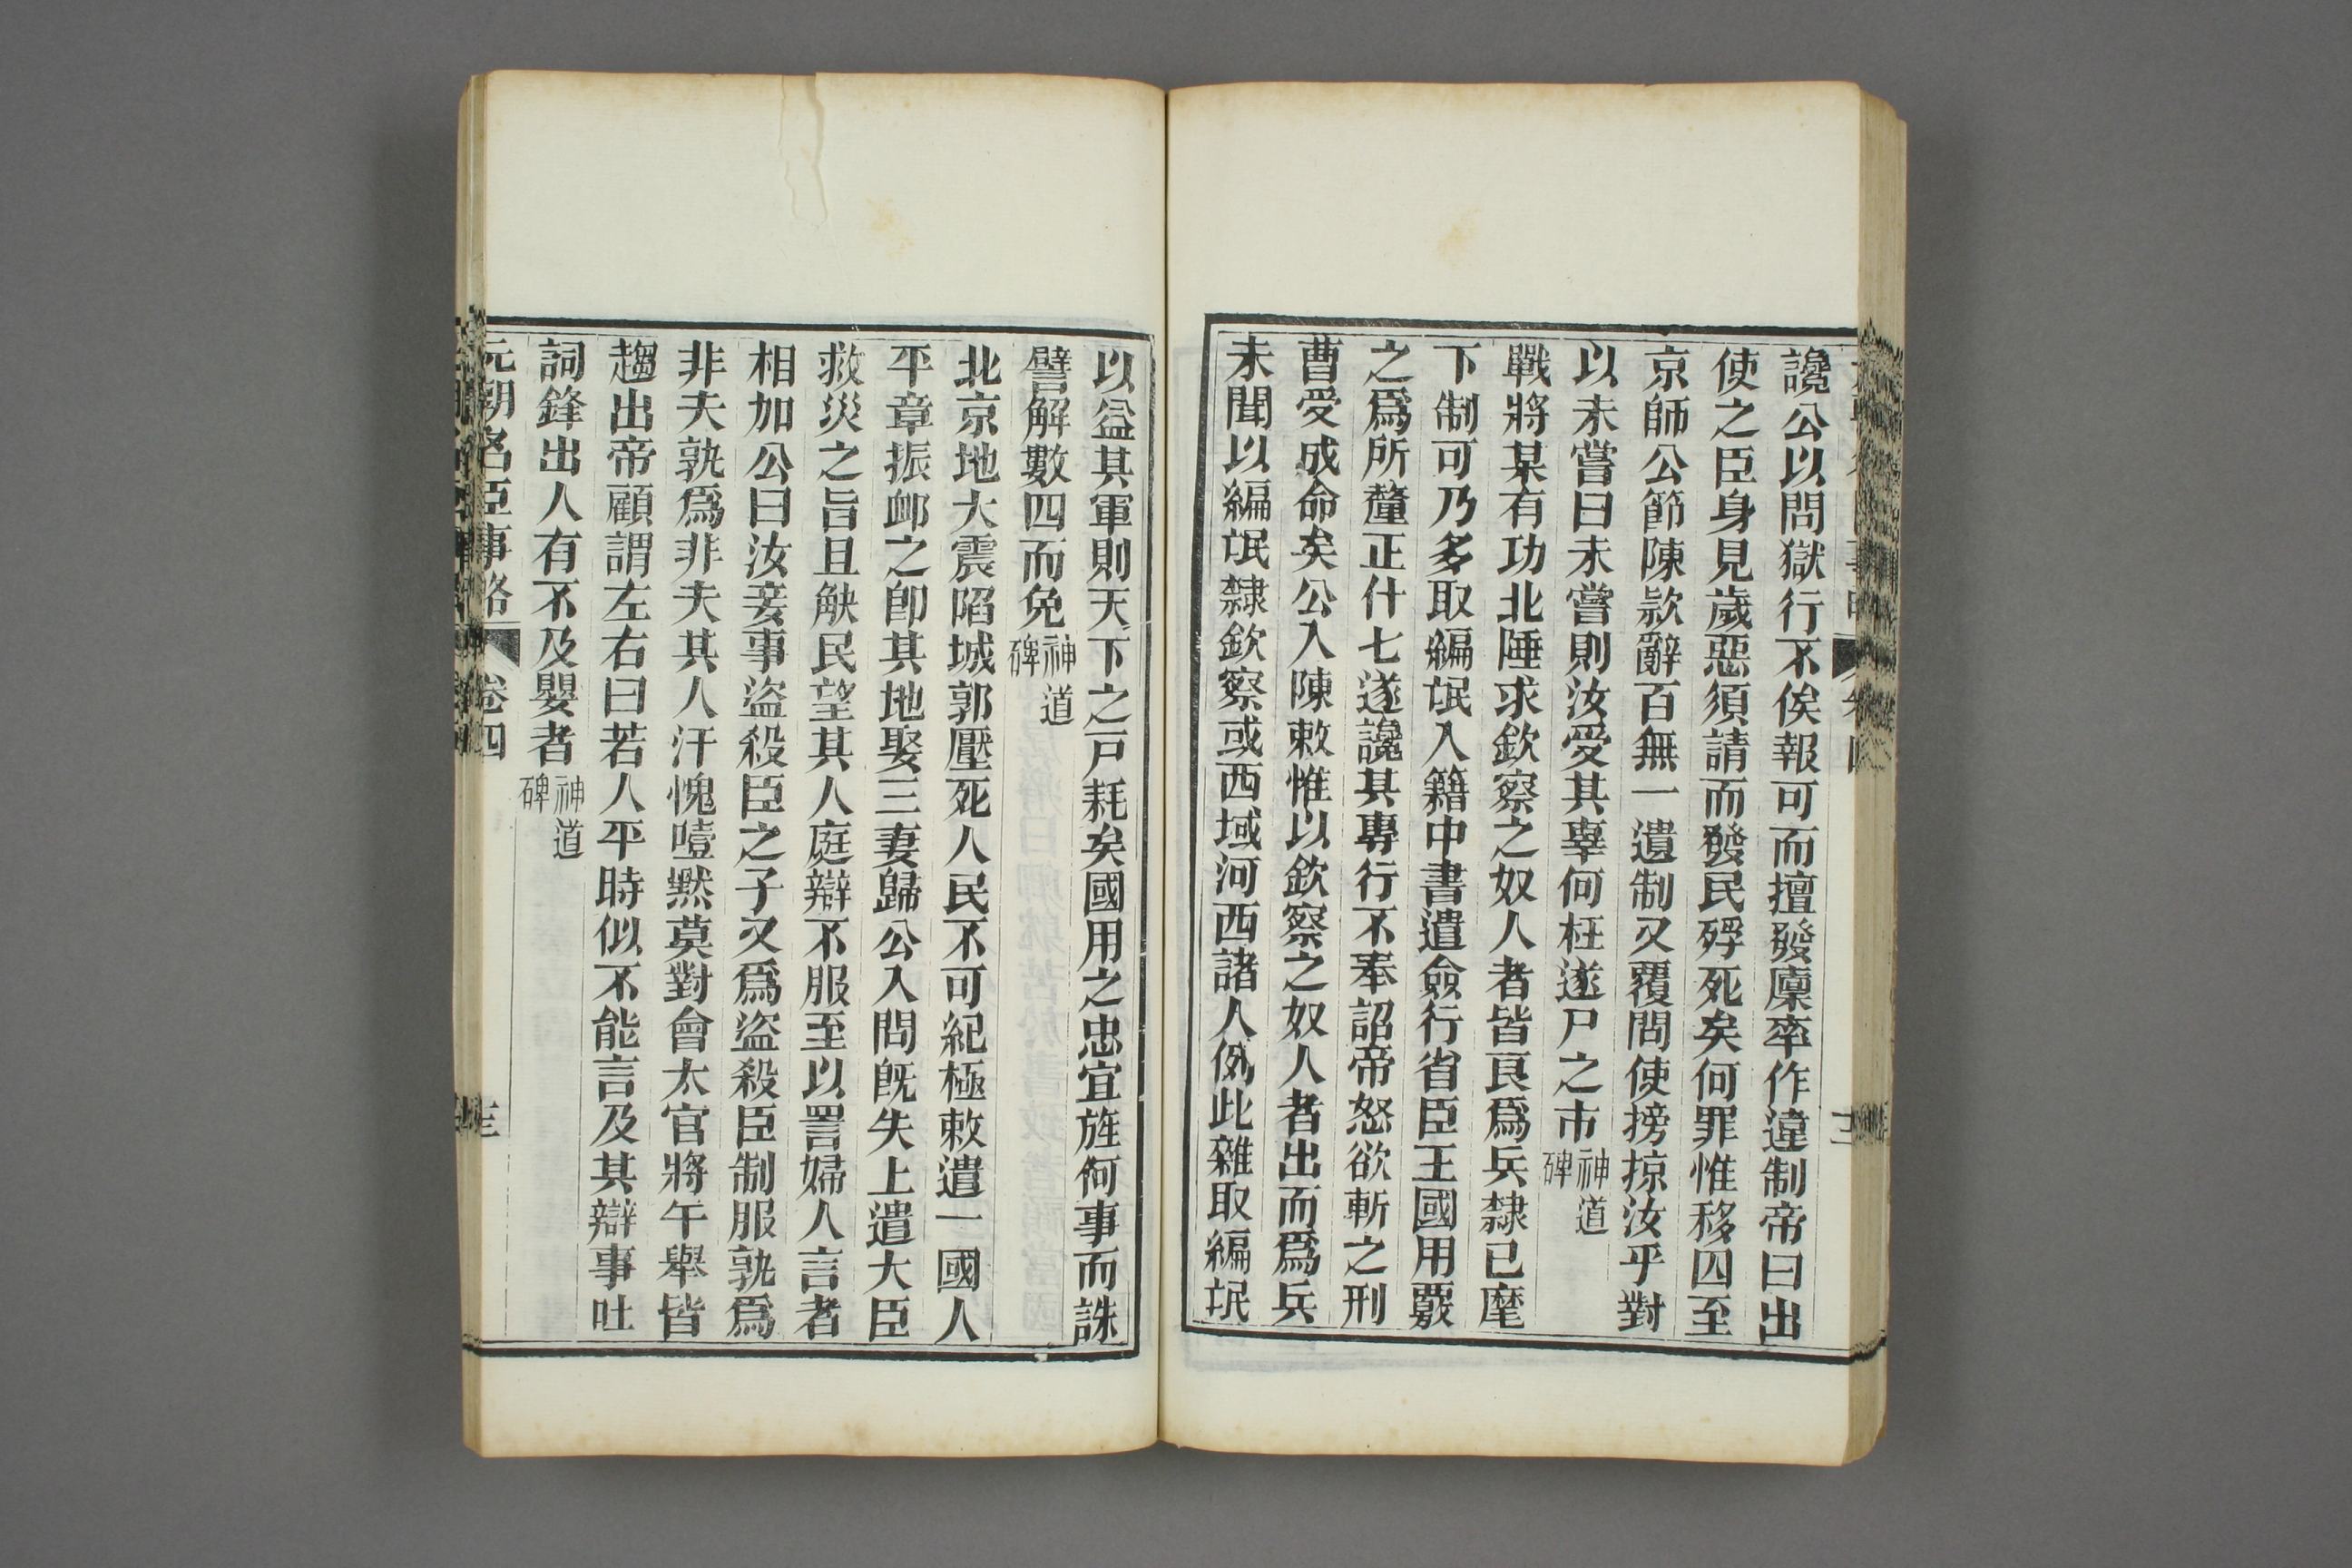 讒公以問獄行不俟報可而擅發廩率作違制帝曰出
使之臣身見歲惡須請而發民殍死矣何罪惟移四至
京師公節陳款辭百無一遺制又覆問使搒掠汝乎對
以未嘗曰未嘗則汝受其辜何枉遂尸之市神道碑
戰將某有功北陲求欽察之奴人者皆良爲兵隸已麾
下制可乃多取編氓入籍中書遣僉行省臣王國用覈
之爲所釐正什七遂讒其專行不奉詔帝怒欲斬之刑
曹受成命矣公入陳敕惟以欽察之奴人者出而爲兵
未聞以編氓隸欽察或西域河西諸人例此雜取編氓
以益其軍則天下之戸耗矣國用之忠宜旌何事而誅
譬解數四而免神道碑
北京地大震陷城郭壓死人民不可紀極敕遣一國人
平章振䘏之卽其地娶三妻歸公入問旣失上遣大臣
救災之旨且觖民望其人庭辯不服至以詈婦人言者
相加公曰汝妾事盜殺臣之子又爲盜殺臣制服孰爲
非夫孰爲非夫其人汗愧噎默莫對會太官將午舉皆
趨出帝顧謂左右曰若人平時似不能言及其辯事吐
詞鋒出人有不及嬰者神道碑
元朝名臣事略 卷四